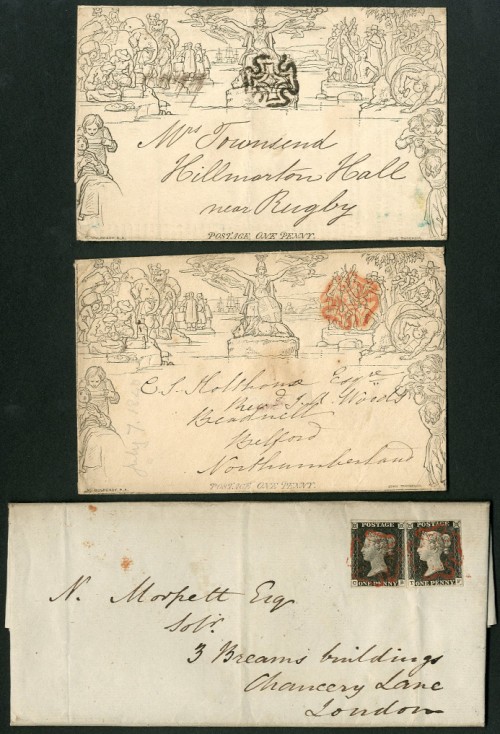 Mrs Townsend
Hillmorton Hall
near Rugby
POSTAGE ONE PENNY.
Esqre
Revd J. Woods
Beadnell
Belford
Northumberland
POSTAGE ONE PENNY.
POSTAGE POSTAGE
ONE PENNY ONE PENNY
N. Morpett Esq
Solr.
3 Breams buildings
Chancery Lane
London